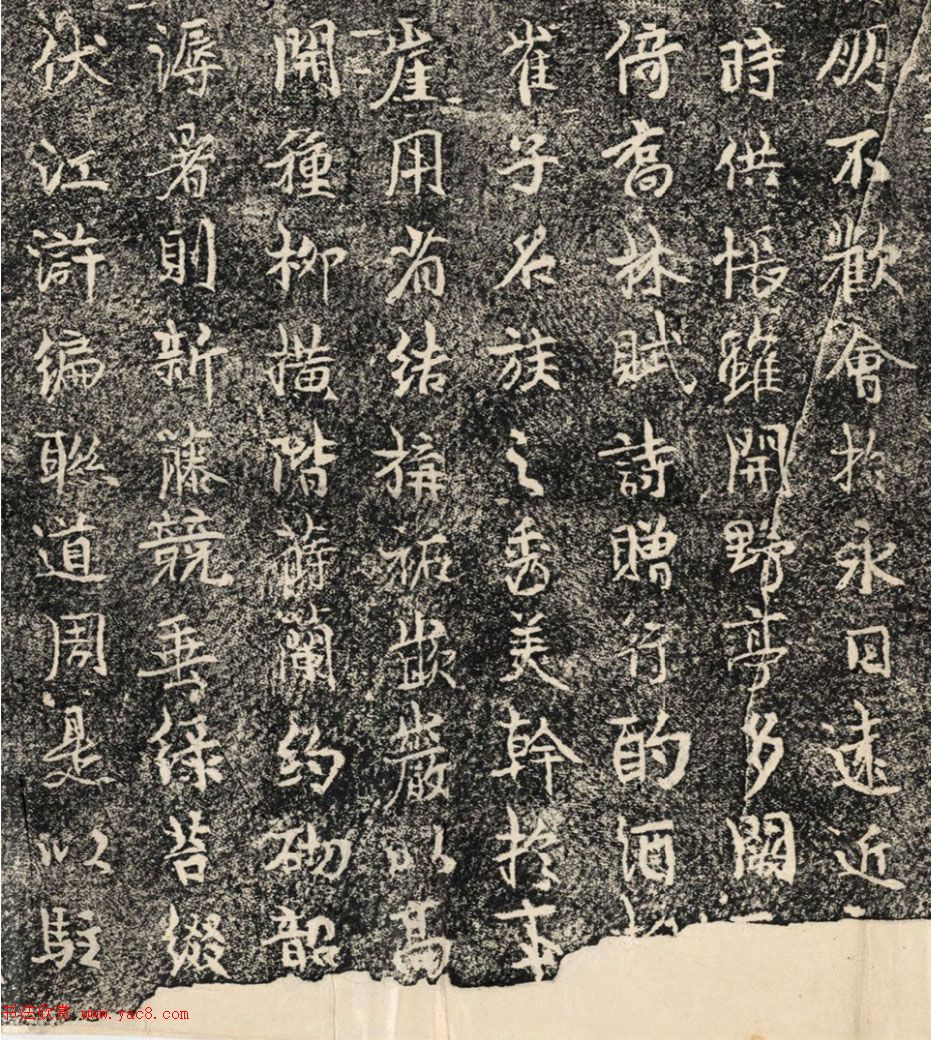 朋不歡會於永日遠近
時供悵雖開野亭多闕
倚高林賦詩贈行酌酒
崔子名族之秀美幹於本
崖用省結搆祐嵌巖以為
開種柳撗階蒔蘭約砌韶
溽暑則新藤競垂綠苔綴
伏江滸編聯道周是以駐
书法欣赏 www.yac8.com